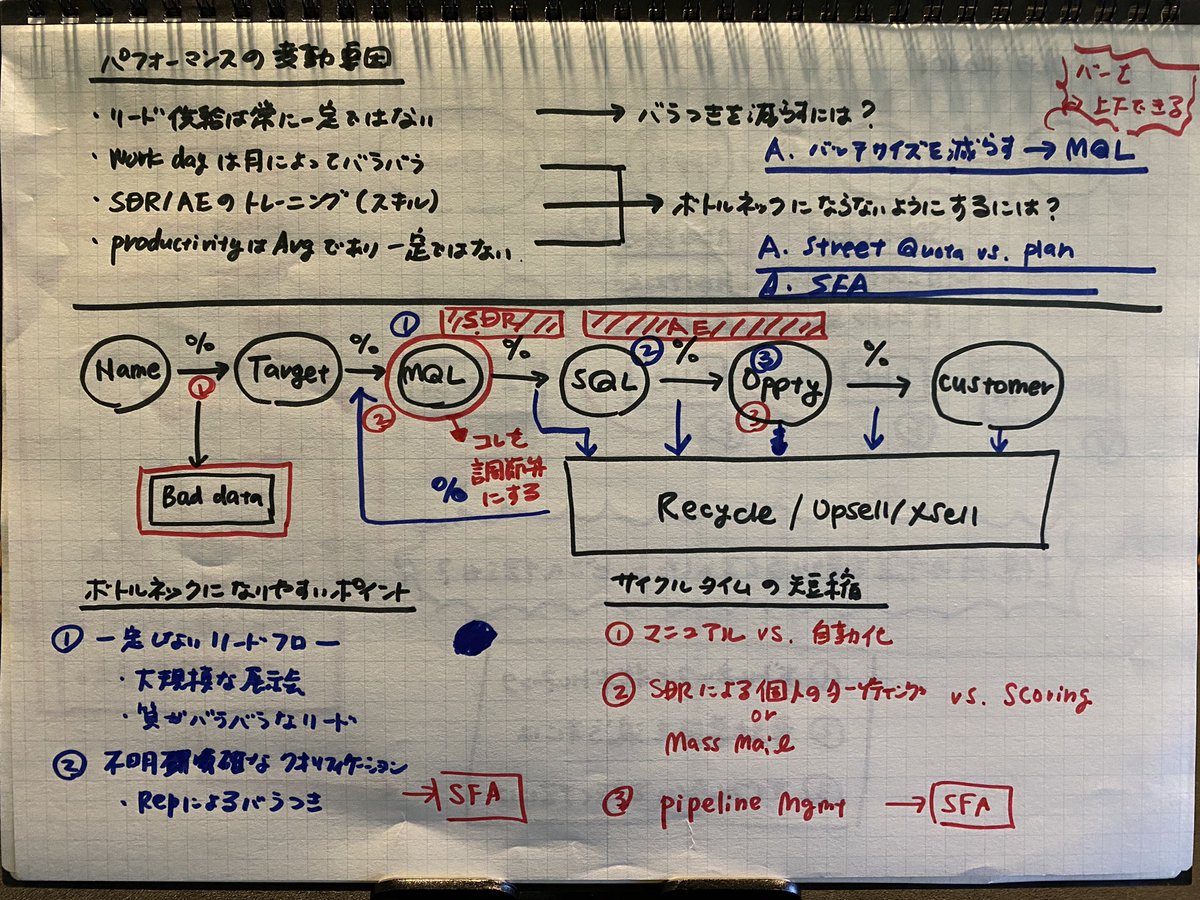 パフォーマンスの変動要因
バーも
上下できる
・リード供給は常に一定ではない
→ バラつきを減らすには?
A. バッチサイズを減らす → MQL
・Work dayは月によってバラバラ
・SDR/AEのトレーニング(スキル)
→ ボトルネックにならないようにするには?
・productivityはAvgであり一定ではない
A. Street Quota vs. plan
A. SFA
① SDR AE
Name % → Target % → MQL % → SQL ② % → ③ Oppty % → customer
① ② ③
コレを
調節弁
にする
%
Bad data
Recycle / Upsell / Xsell
ボトルネックになりやすいポイント
① 一定しないリードフロー
・大規模な展示会
・質がバラバラなリード
② 不明確なクオリフィケーション
・Repによるバラつき
→ SFA
サイクルタイムの短縮
① マニュアル vs. 自動化
② SDRによる個人のターゲティング vs. Scoring
or
Mass Mail
③ pipeline Mgmt → SFA